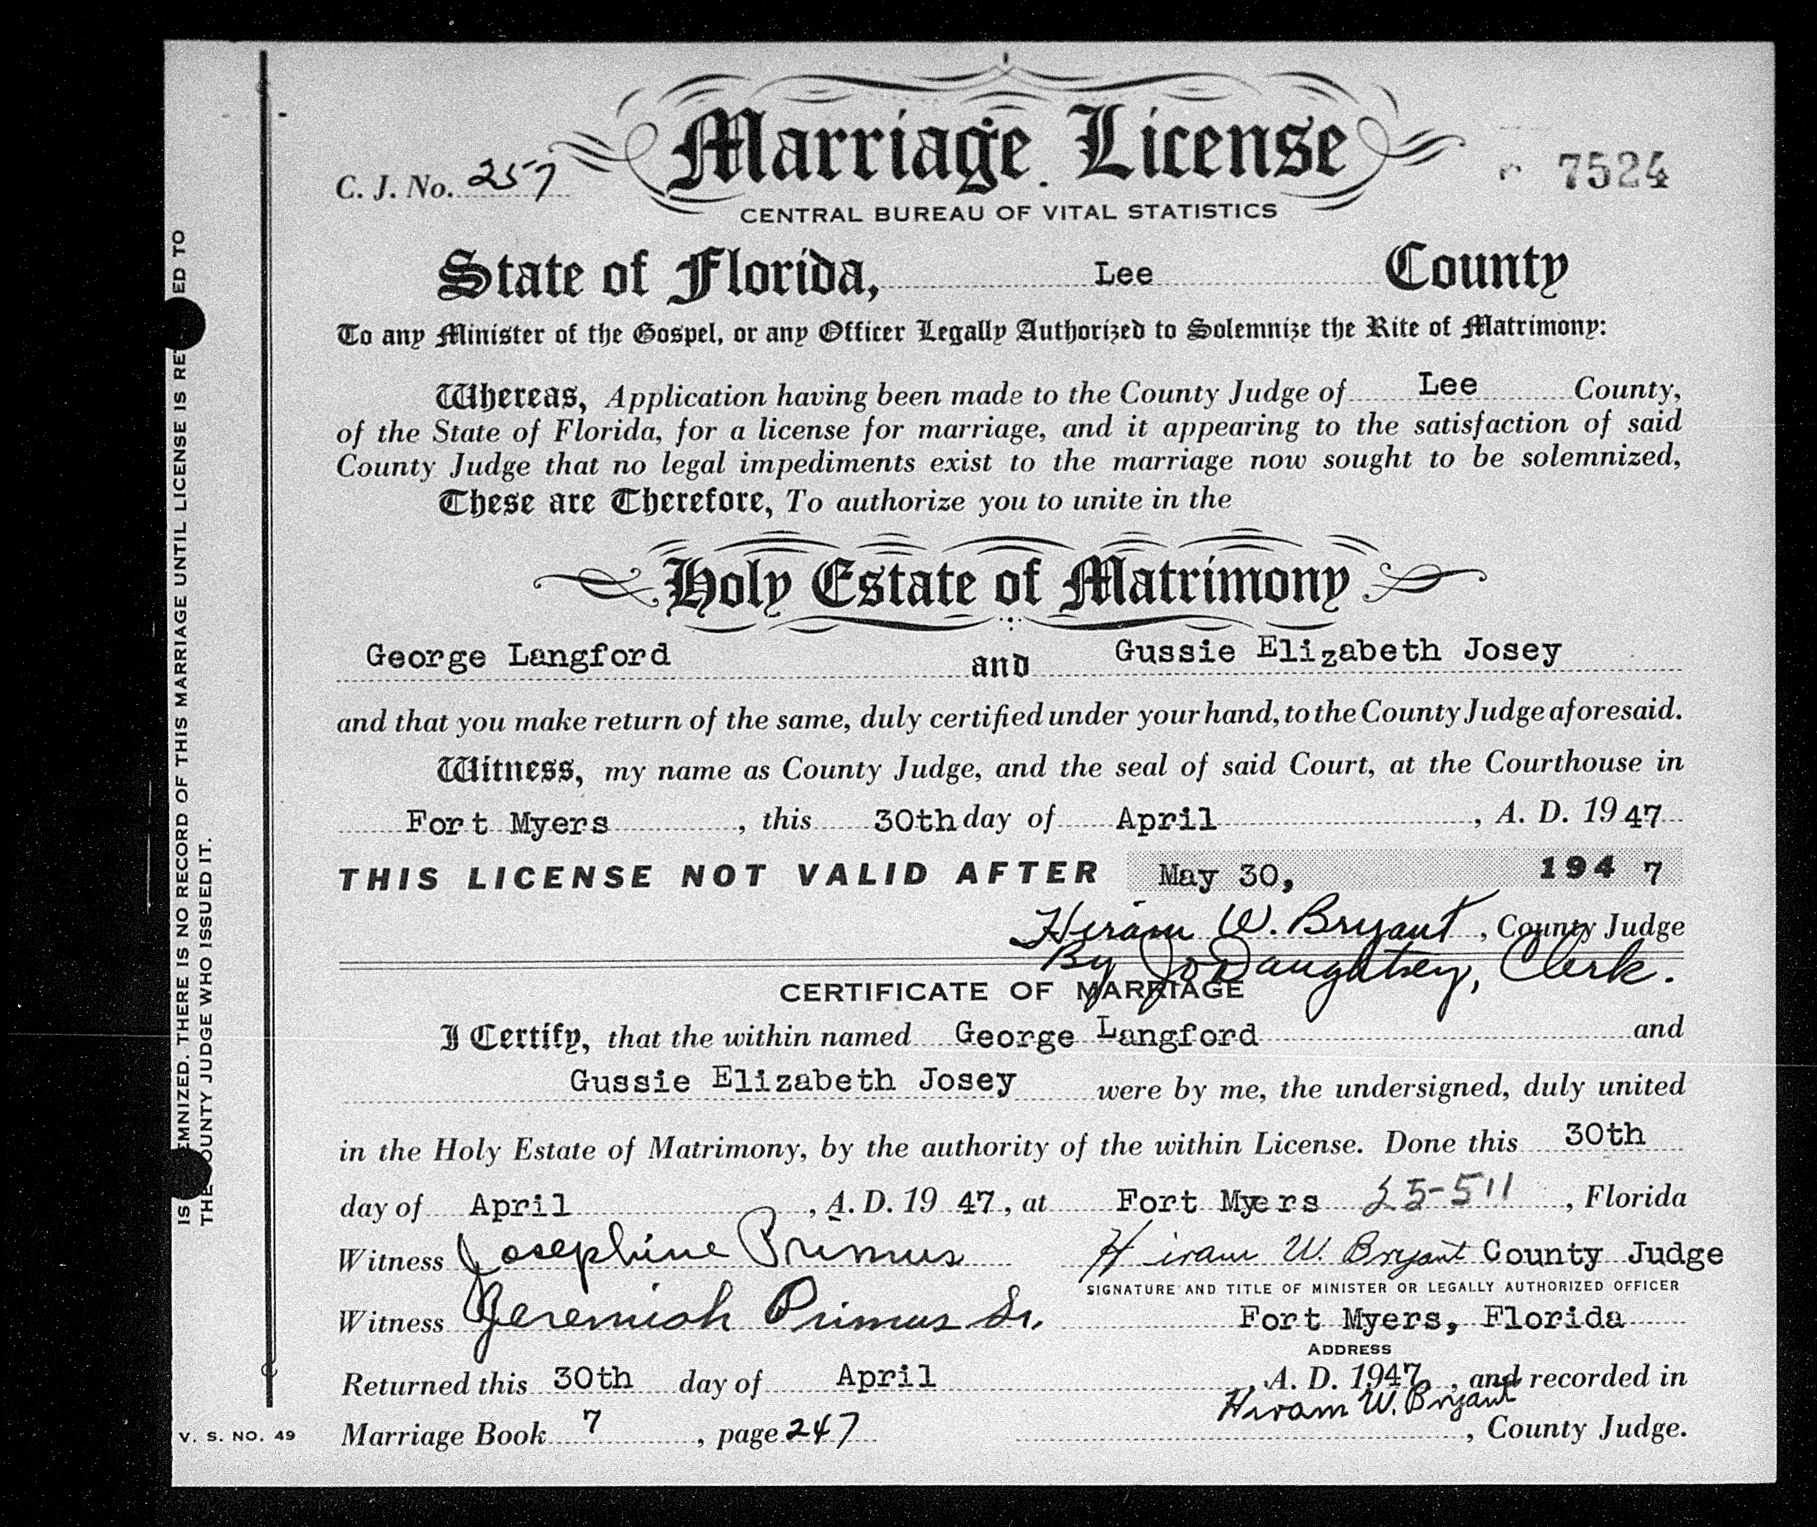 Marriage License
C. J. No. 257
7524
CENTRAL BUREAU OF VITAL STATISTICS
State of Florida, Lee County
To any Minister of the Gospel, or any Officer Legally Authorized to Solemnize the Rite of Matrimony:
Whereas, Application having been made to the County Judge of Lee County,
of the State of Florida, for a license for marriage, and it appearing to the satisfaction of said
County Judge that no legal impediments exist to the marriage now sought to be solemnized,
These are Therefore, To authorize you to unite in the
Holy Estate of Matrimony
George Langford and Gussie Elizabeth Josey
and that you make return of the same, duly certified under your hand, to the County Judge aforesaid.
Witness, my name as County Judge, and the seal of said Court, at the Courthouse in
Fort Myers, this 30th day of April, A. D. 1947
THIS LICENSE NOT VALID AFTER May 30, 1947
Hiram W. Bryant, County Judge
By Jo Daughtrey, Clerk.
CERTIFICATE OF MARRIAGE
I Certify, that the within named George Langford and
Gussie Elizabeth Josey were by me, the undersigned, duly united
in the Holy Estate of Matrimony, by the authority of the within License. Done this 30th
day of April, A. D. 1947, at Fort Myers 25-511, Florida
Witness Josephine Primus Hiram W. Bryant County Judge
SIGNATURE AND TITLE OF MINISTER OR LEGALLY AUTHORIZED OFFICER
Witness Jeremiah Primus Sr. Fort Myers, Florida
ADDRESS
Returned this 30th day of April, A. D. 1947, and recorded in
Hiram W. Bryant
Marriage Book 7, page 247, County Judge.
V. S. NO. 49
IS EMNIZED. THERE IS NO RECORD OF THIS MARRIAGE UNTIL LICENSE IS RE ED TO
THE COUNTY JUDGE WHO ISSUED IT.